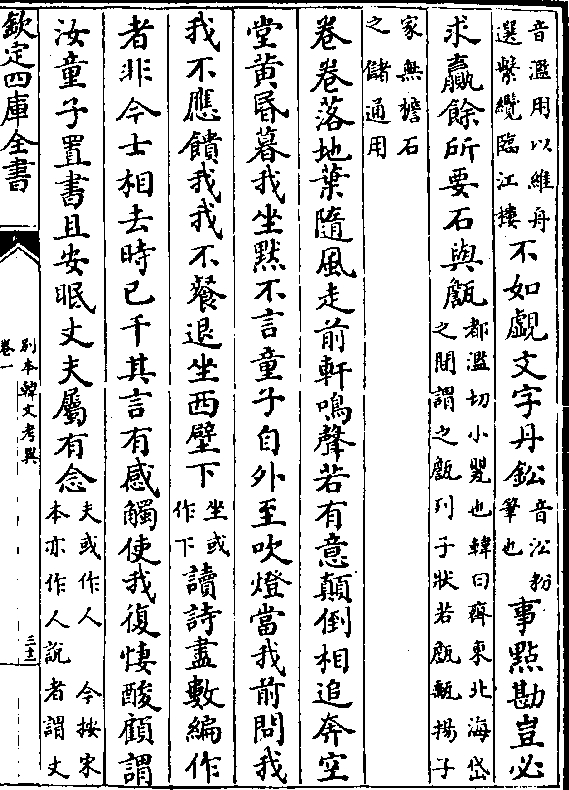 音濫用以維舟
選繫纜臨江樓
不如覷文字丹鈆
音㳂粉
筆也
事點勘豈必
求贏餘所要石與甔
都濫切小甖也韓曰齊東北海岱
之間謂之甔列子狀若甔甀揚子
家無檐石
之儲通用
卷卷落地葉隨風走前軒鳴聲若有意顛倒相追奔空
堂黄昏暮我坐默不言童子自外至吹燈當我前問我
我不應饋我我不餐退坐西壁下
坐或
作下
讀詩盡數編作
者非今士相去時已千其言有感觸使我復悽酸顧謂
汝童子置書且安眠丈夫屬有念
夫或作人 今按宋
本亦作人説者謂丈
欽定四庫全書
別本韓文考異
卷一